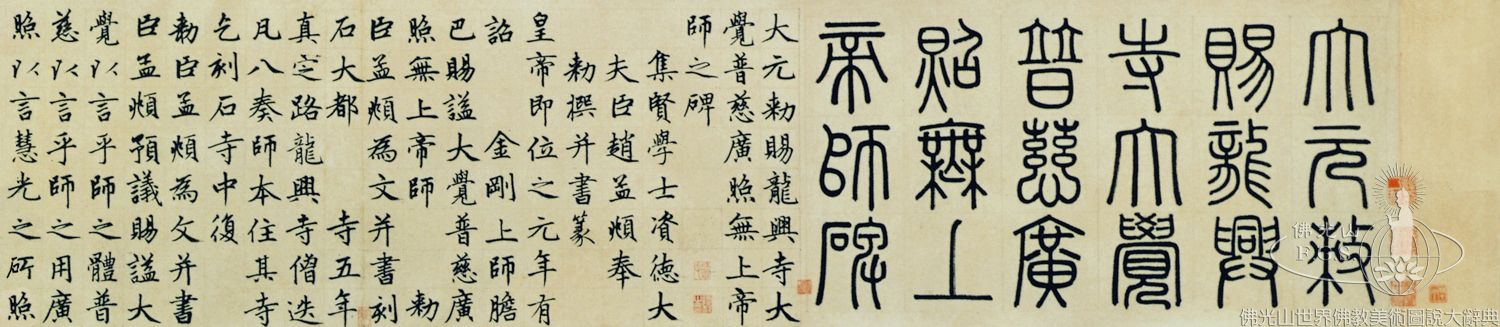 大元敕
賜龍興
寺大覺
普慈廣
照無上
帝師碑
大元勑賜龍興寺大
覺普慈廣照無上帝
師之碑
集賢學士資德大
夫臣趙孟頫奉
勑撰并書篆
皇帝即位之元年有
詔 金剛上師膽
巴賜謚大覺普慈廣
照無上帝師 勑
臣孟頫為文并書刻
石大都 寺五年
真定路龍興寺僧迭
凡八奏師本住其寺
乞刻石寺中復
勑臣孟頫為文并書
臣孟頫預議賜謚大
覺以言乎師之體普
慈以言乎師之用廣
照以言慧光之所照
佛光山
佛光山世界佛教美術圖說大辭典